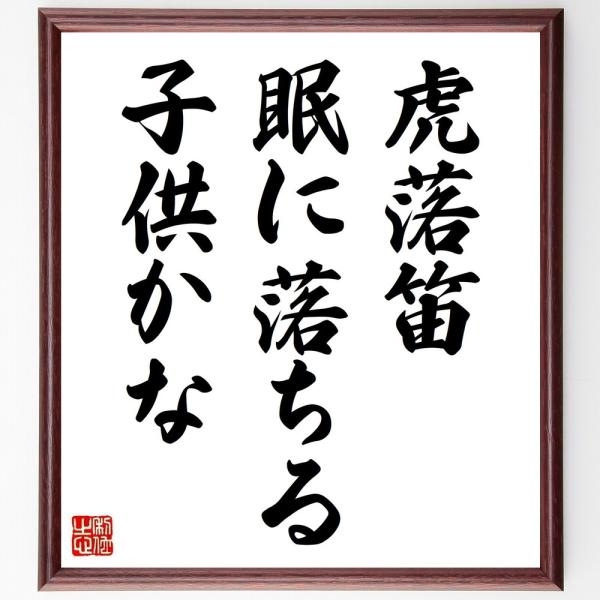 虎落笛
眠に落ちる
子供かな